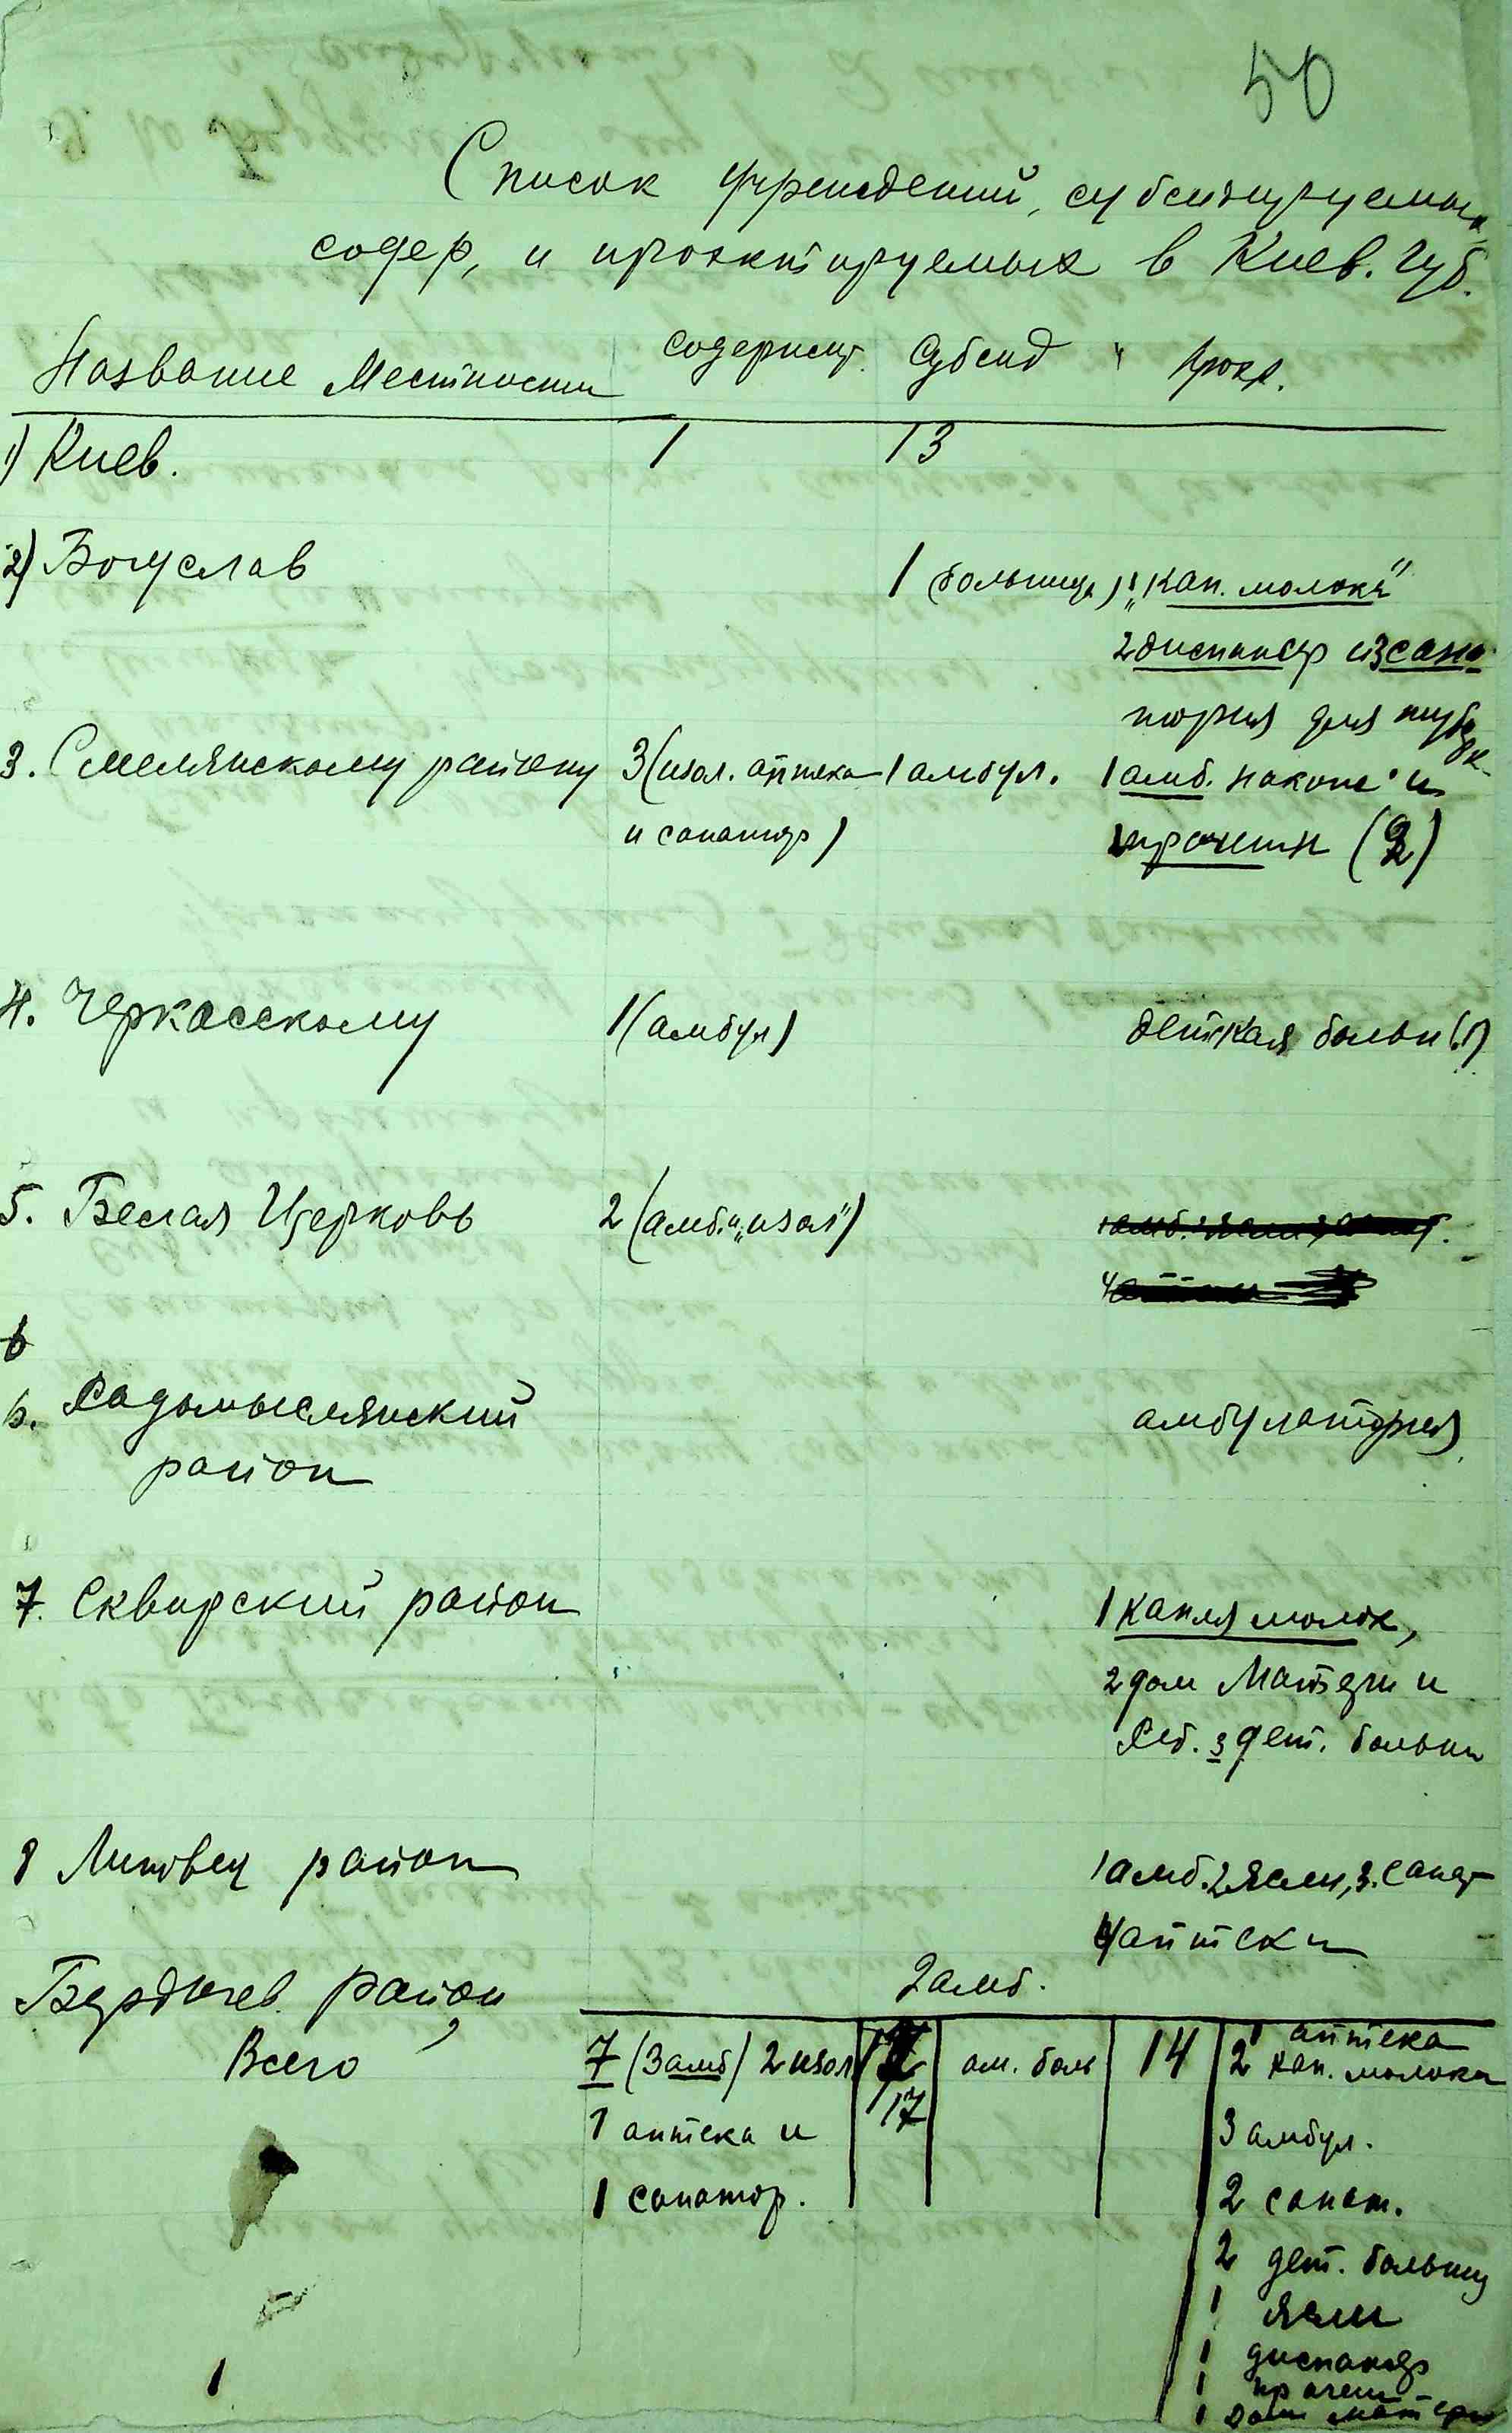 50
Список учреждений, субсидируемых
содер, и проэктируемых в Киев. Губ.
Название Местности содержит. Субсид " проэк.
1) Киев. 1 13
2) Богуслав 1 (больница) 1 "Кап. молока"
2 диспансер и 3 сана-
тория для туберк
3. Смелянскому району 3 (изол. аптека 1 амбул. 1 амб. и
и санатор) прочешн (2)
4. Черкасскому 1 (амбул) детская больн (1)
5. Белая Церковь 2 (амб. и "изол")
6
6. Радомыслянский амбулатория
район
7. Сквирский район 1 Капля молок,
2 дом Матери и
Реб. 3 дет. больни
8 Липовец район 1 амб. 2 Ясли, 3. санат
4 аптеки
Бердичев. район 2 амб.
Всего 7 (3 амб) 2 изол 17 ам. боль 14 1 аптека
2 кап. молока
1 аптека и 3 амбул.
1 санатор. 2 санат.
2 дет. больниц
1 Ясли
1 диспансер
1 прачеш
1 дом матери
1